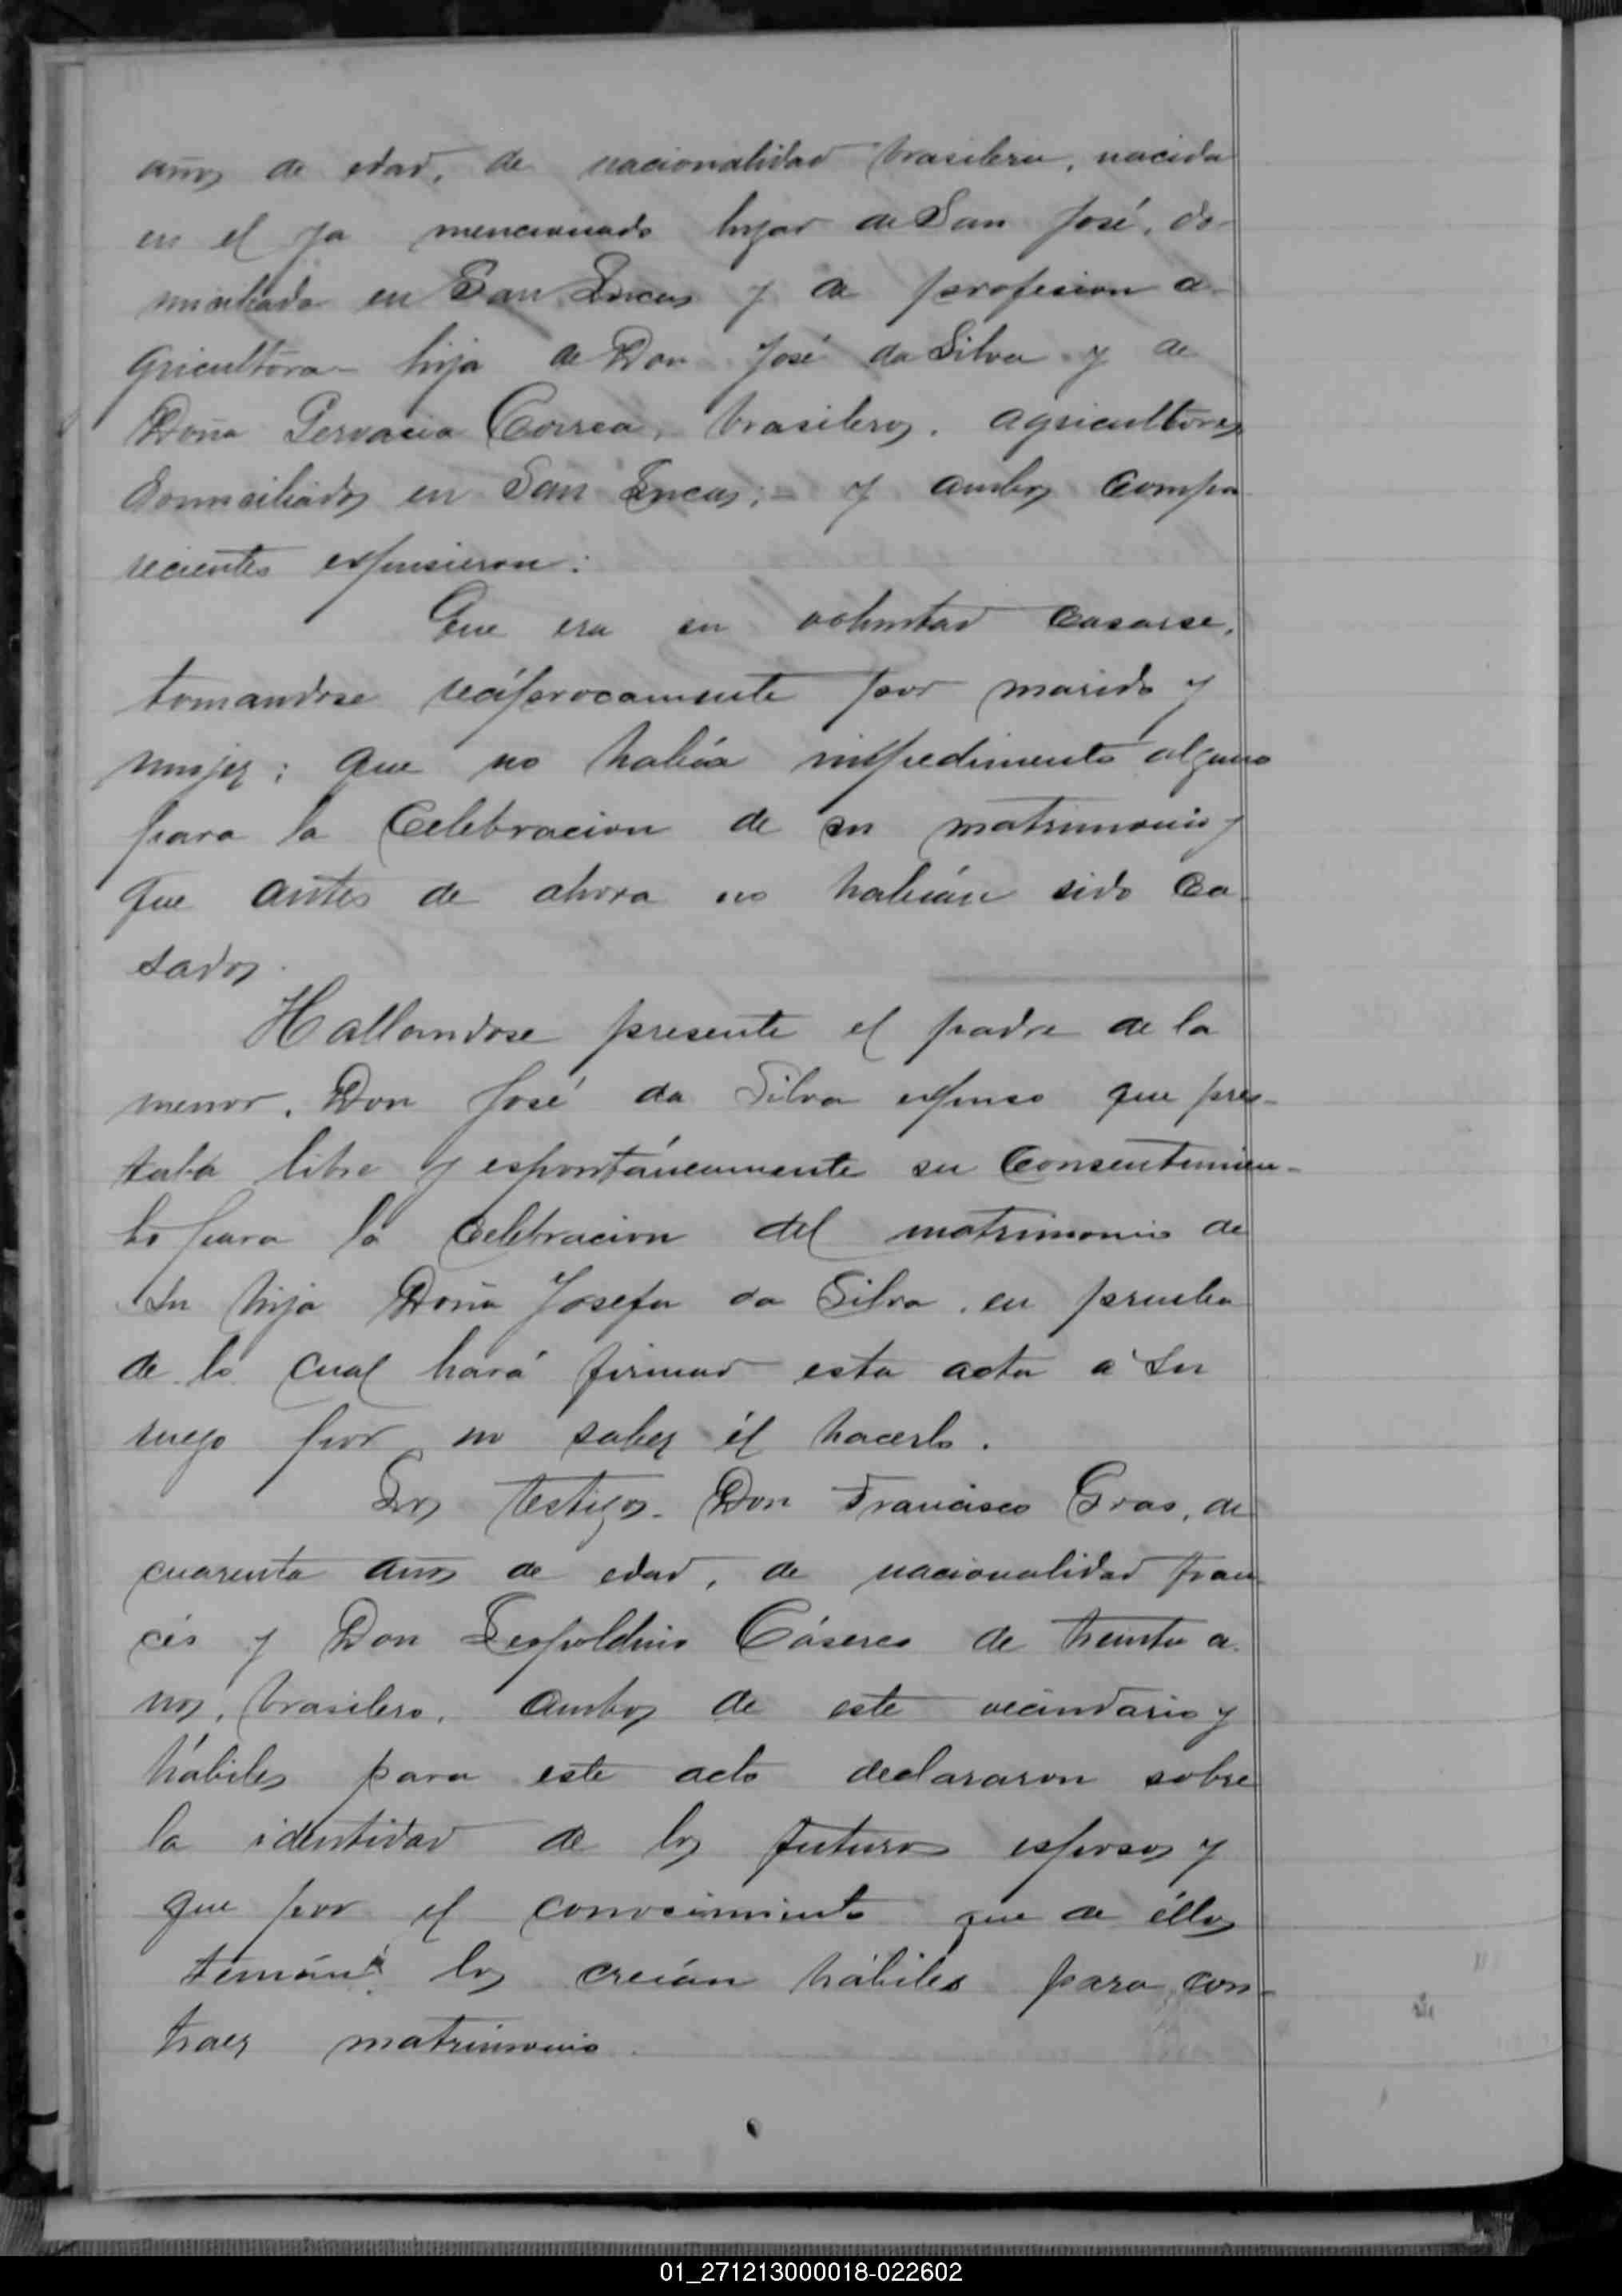 años de edad, de nacionalidad brasilera, nacida
en el ya mencionado lugar de San José, do-
miciliada en San Lucas y de profesion a-
gricultora - hija de Don José da Silva y de
Doña Gervacia Correa, brasileros, agricultores
domiciliados en San Lucas; - y ambos compa
recientes expusieron:
Que era su voluntad casarse,
tomandose recíprocamente por marido y
mujer; que no había impedimento alguno
para la celebracion de su matrimonio y
que antes de ahora no habían sido ca
sados.
Hallandose presente el padre de la
menor, Don José da Silva expuso que pres-
taba libre y espontáneamente su consentimien-
to para la celebracion del matrimonio de
su hija Doña Josefa da Silva, en prueba
de lo cual hará firmar esta acta á su
ruego por no saber él hacerlo.
Los testigos - Don Francisco Gras, de
cuarenta años de edad, de nacionalidad fran
cés y Don Leopoldino Cáseres de treinta a
ños, brasilero, ambos de este vecindario y
hábiles para este acto declararon sobre
la identidad de los futuros esposos y
que por el conosimiento que de éllos
tenían los creían hábiles para con-
traer matrimonio.
01_271213000018-022602